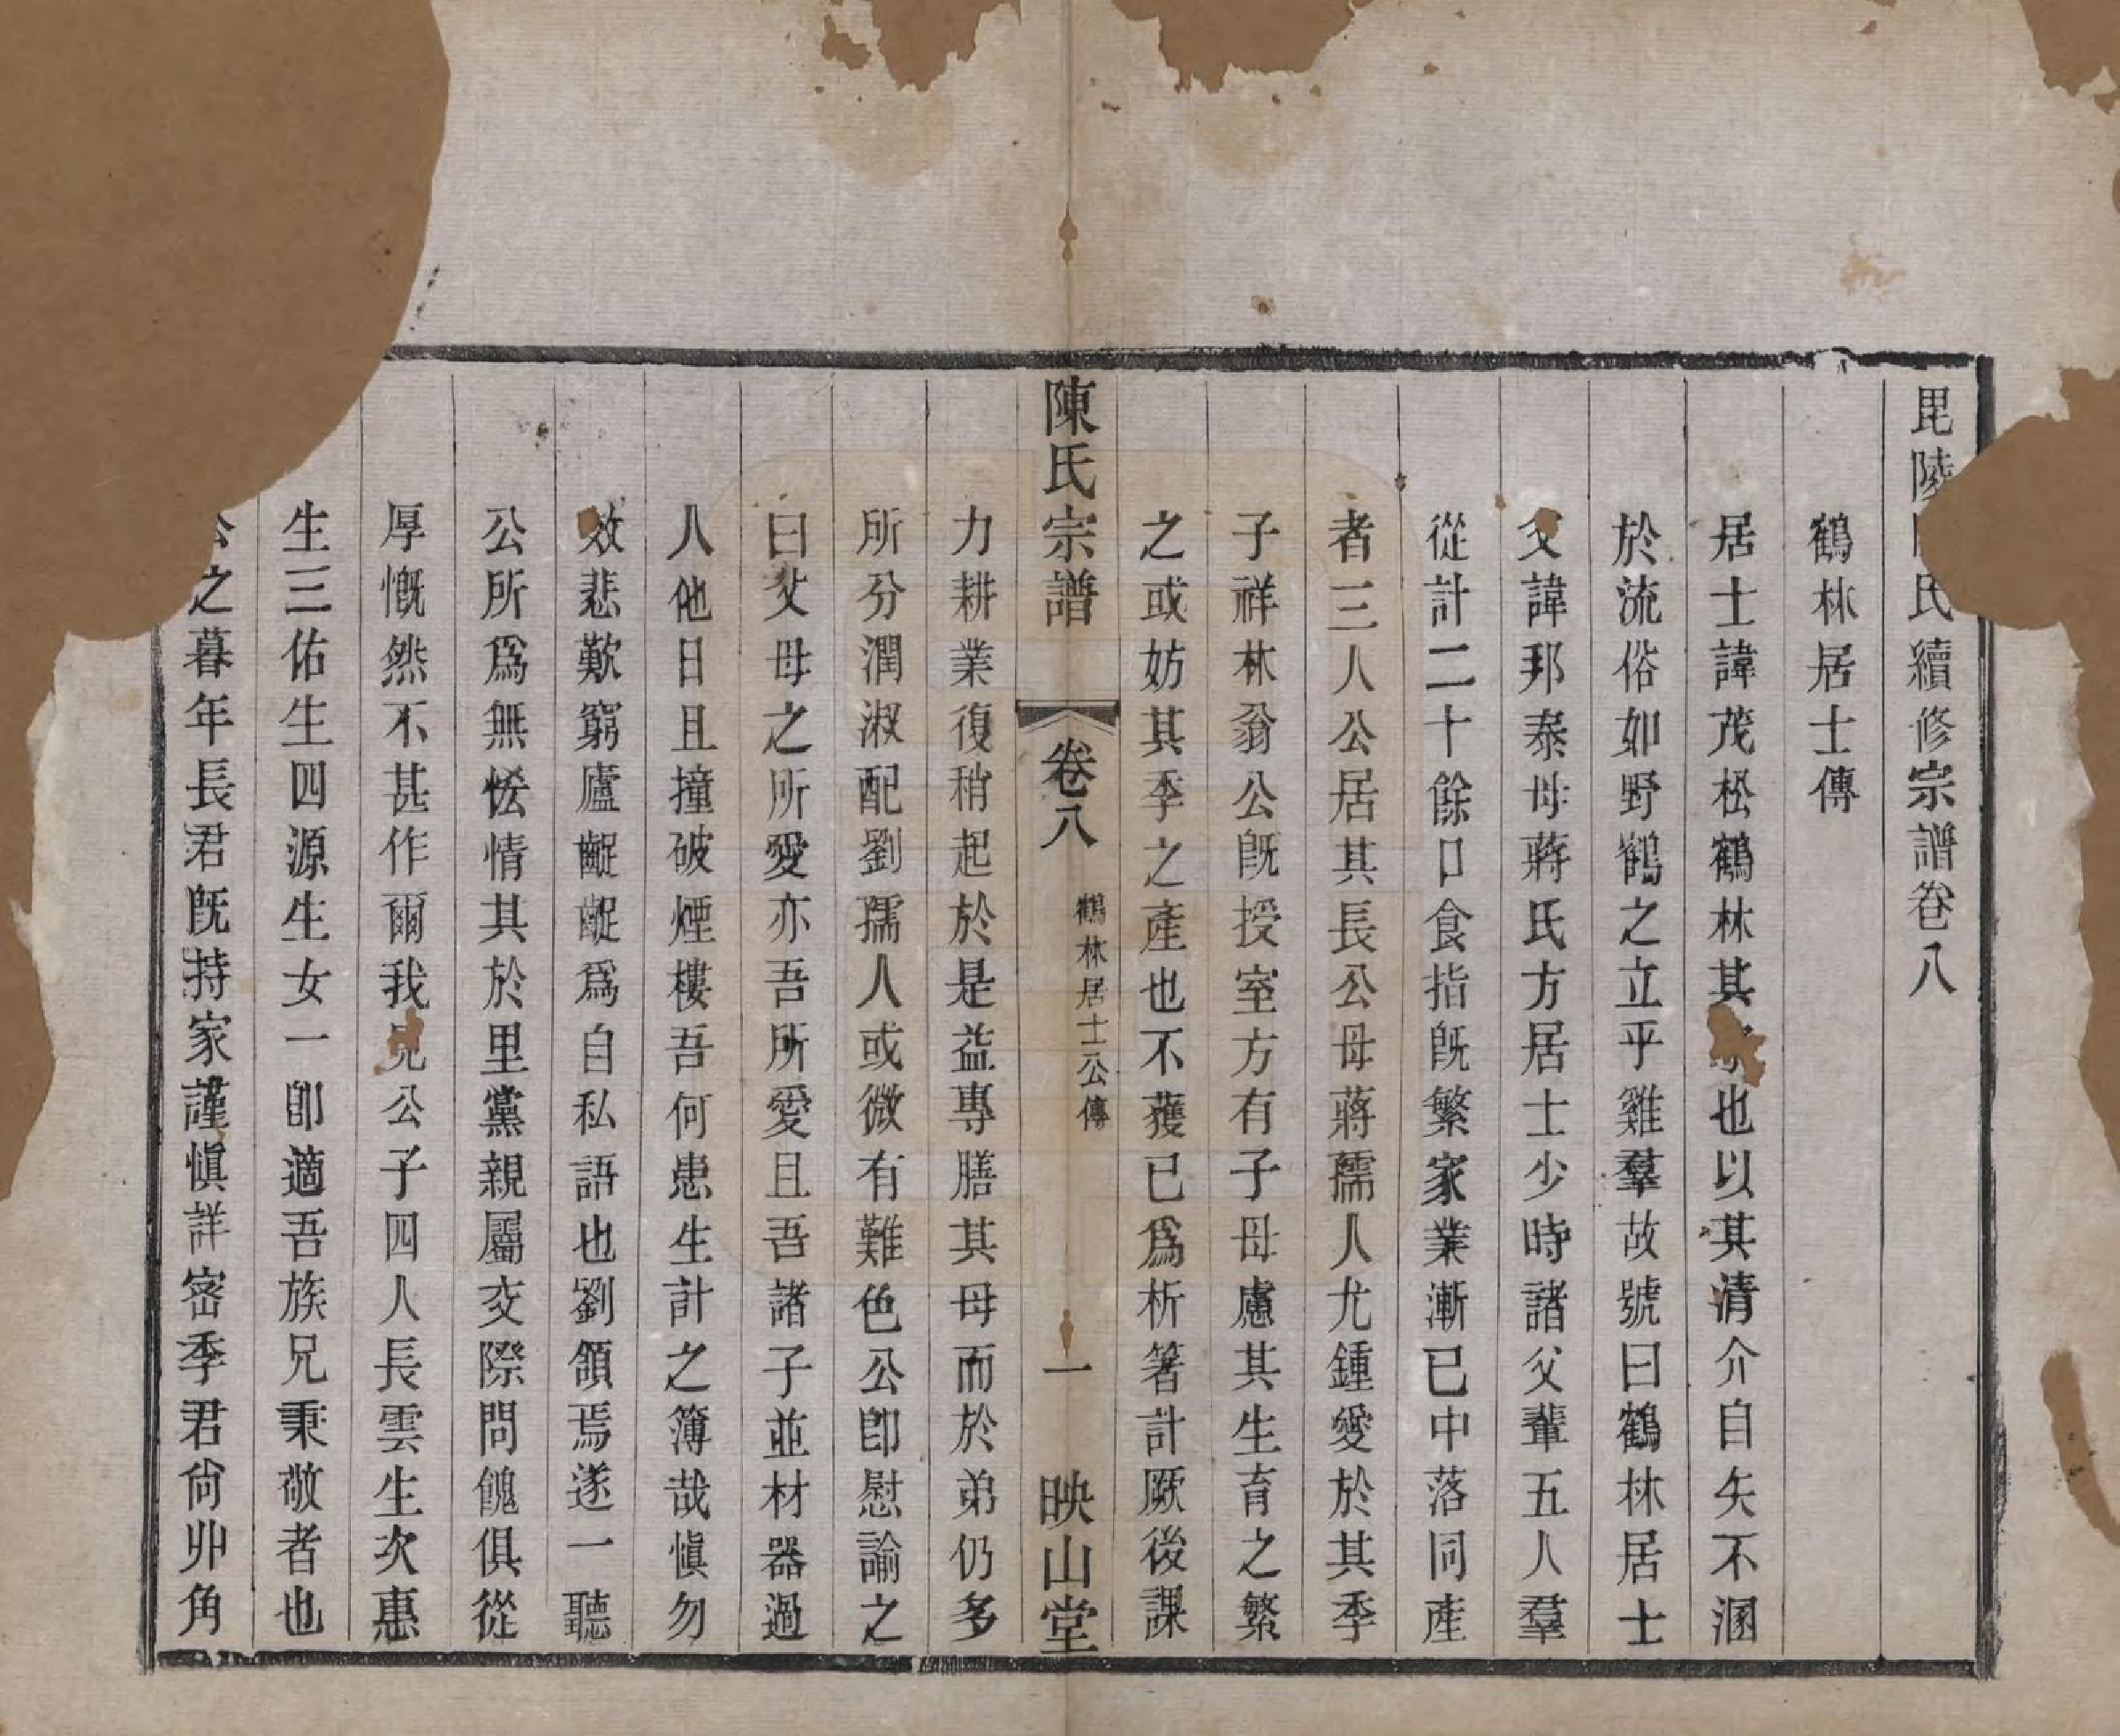 毘陵氏續修宗譜卷八
鶴林居士傳
居士諱茂松鶴林其也以其清介自矢不溷
於流俗如野鶴之立乎雞羣故號曰鶴林居士
父諱邦泰母蔣氏方居士少時諸父輩五人羣
從計二十餘口食指旣繁家業漸已中落同產
者三人公居其長公母蔣孺人尤鍾愛於其季
子祥林翁公旣授室方有子母慮其生育之繁
之或妨其季之產也不獲已爲析箸計厥後課
陳氏宗譜
卷八
鶴林居士公傳
一
映山堂
力耕業復稍起於是益專膳其母而於弟仍多
所分潤淑配劉孺人或微有難色公卽慰諭之
曰父母之所愛亦吾所愛且吾諸子並材器過
人他日且撞破煙樓吾何患生計之簿哉愼勿
效悲歎窮廬齷齪爲自私語也劉頷焉遂一聽
公所爲無恡情其於里黨親屬交際問餽俱從
厚慨然不甚作爾我見公子四人長雲生次惠
生三佑生四源生女一卽適吾族兄秉敬者也
公之暮年長君旣持家謹愼詳密季君尙丱角